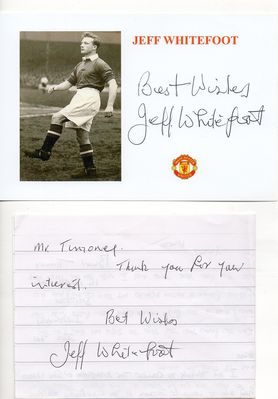 JEFF WHITEFOOT
Best Wishes
Jeff Whitefoot
Thank you for your
interest.
Best Wishes
Jeff Whitefoot